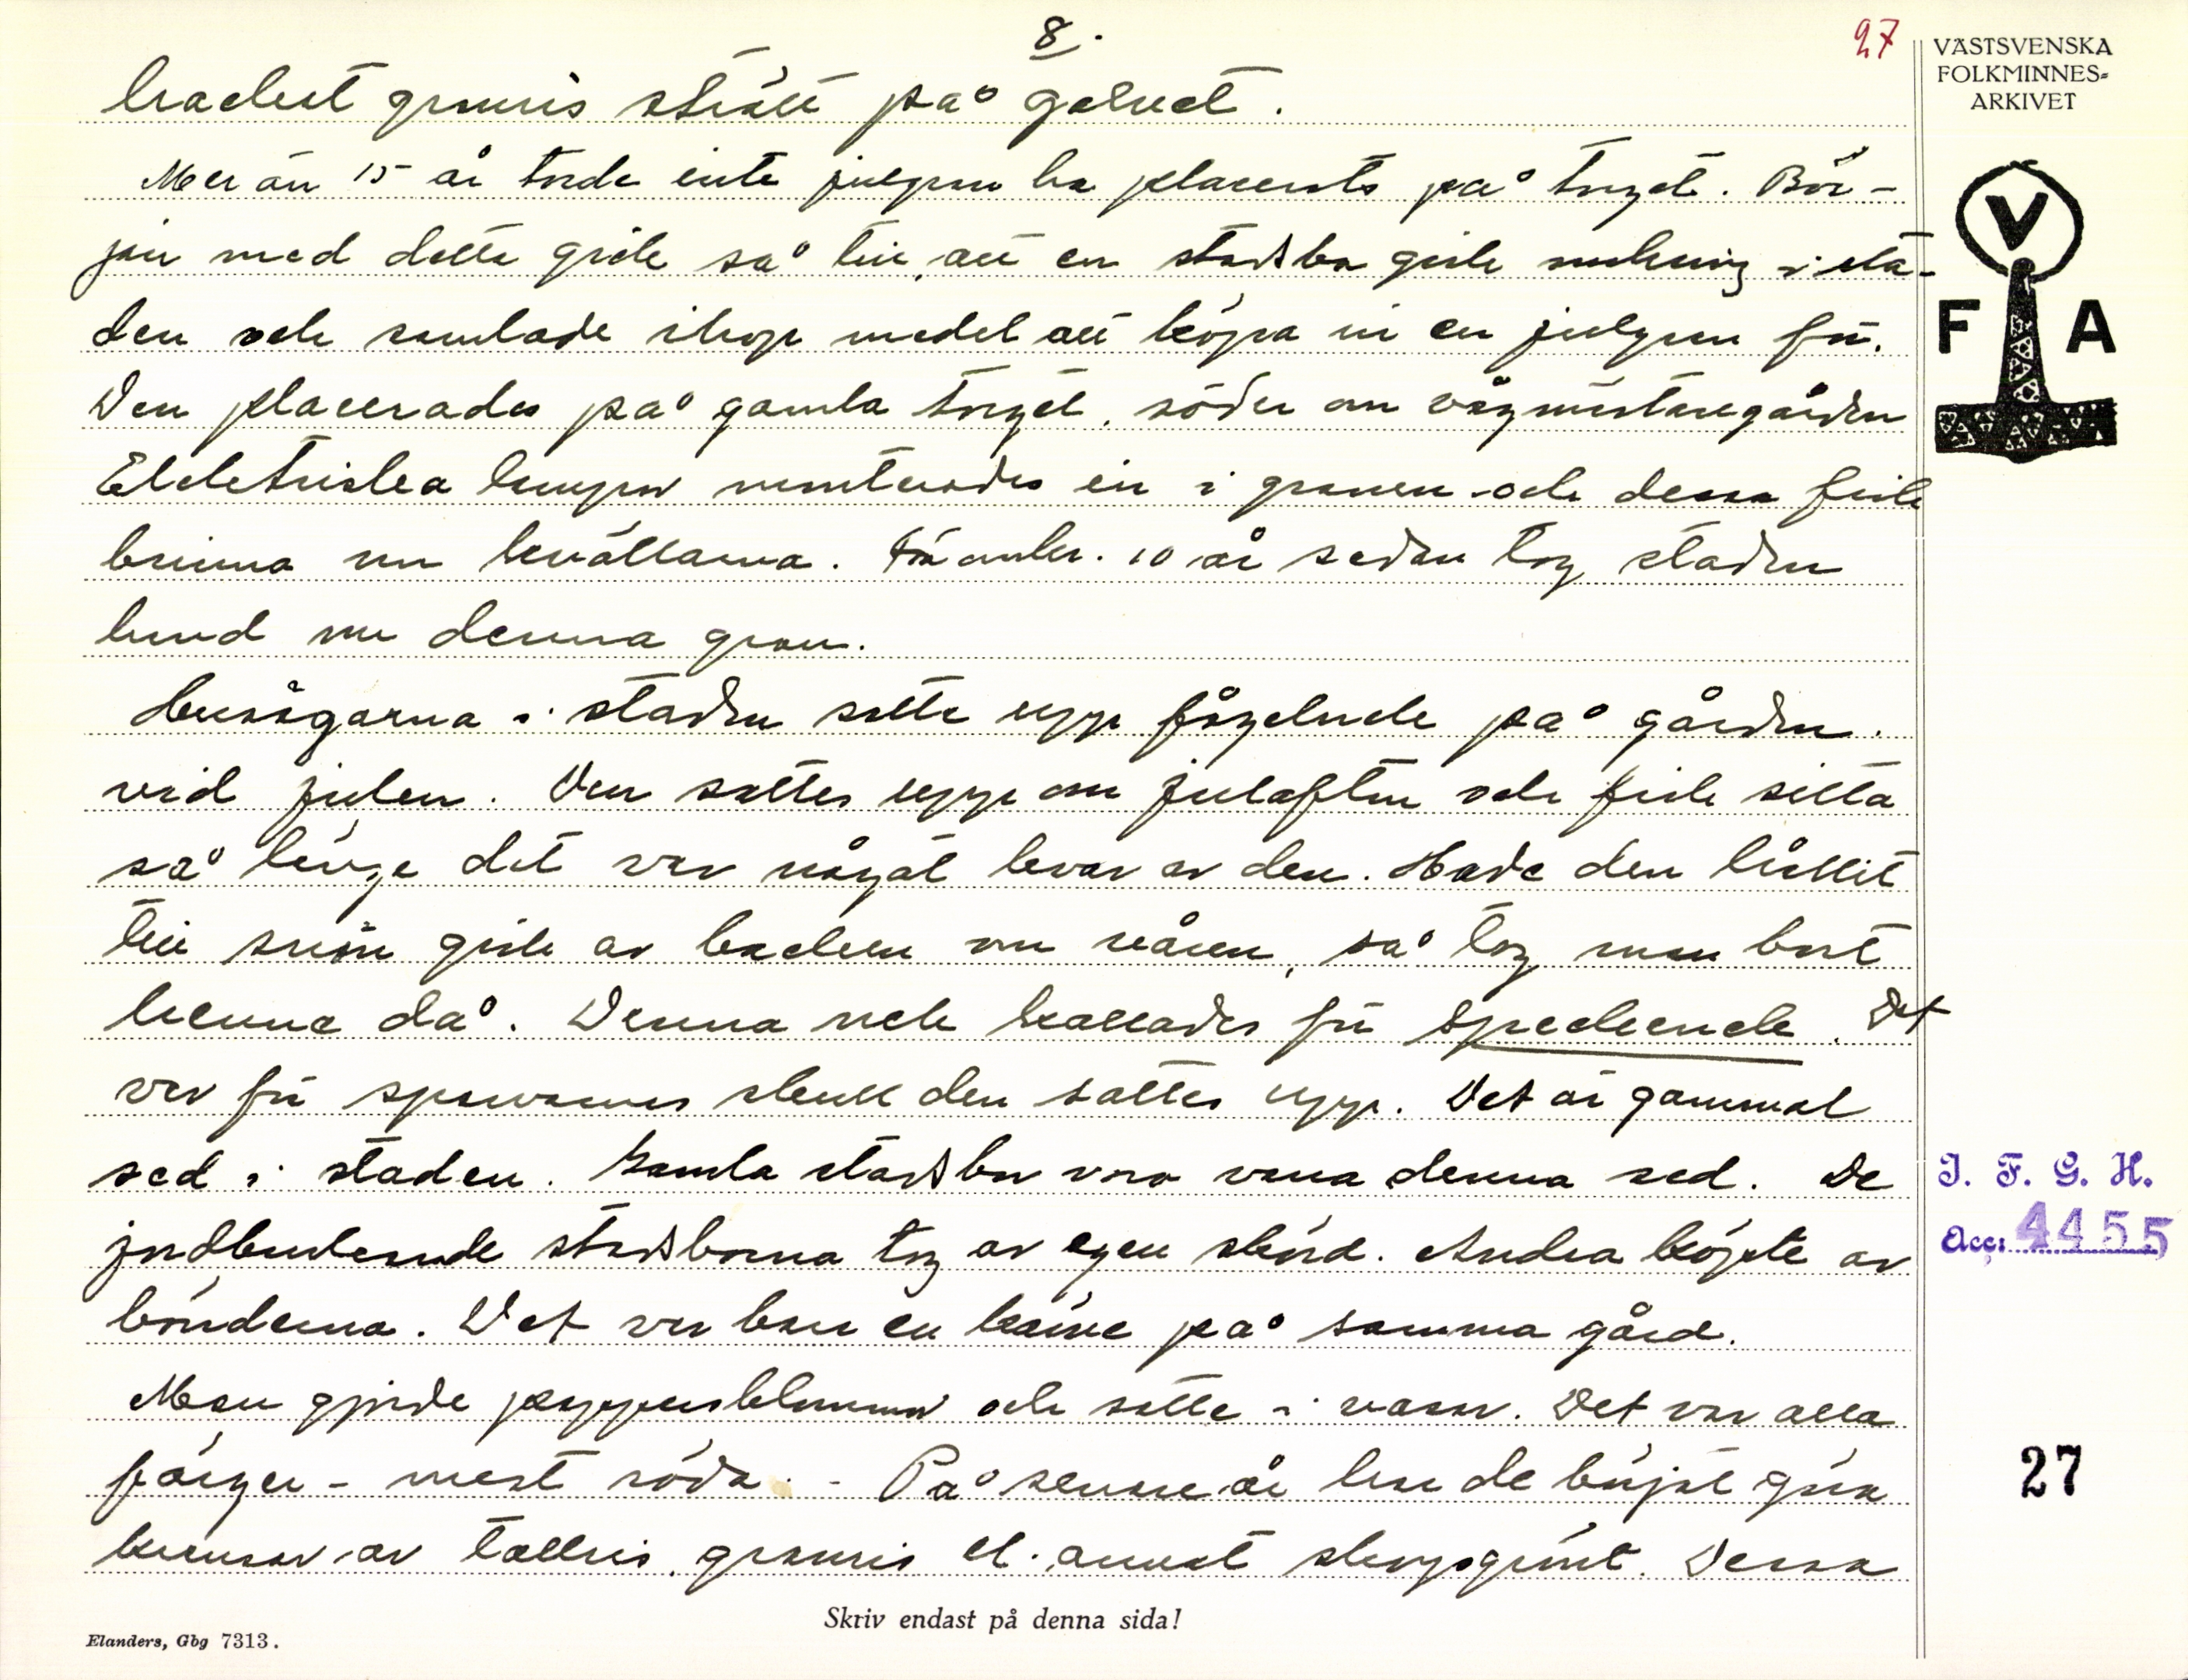 8.
27
VÄSTSVENSKA
FOLKMINNES=
ARKIVET
hackat granris strött på golvet.
Mer än 15 år torde inte julgran ha placerats på torget. Bör-
jan med detta gick så till, att en stadsbo gick omkring i sta-
den och samlade ihop medel att köpa in en julgran för.
Den placerades på gamla torget, söder om vågmästaregården
Elektriska lampor monterades in i granen och dessa fick
brinna om kvällarna. För omkr. 10 år sedan tog staden
hand om denna gran.
Husägarna i staden satte upp fågelnek på gården
vid julen. Den sattes upp om julafton och fick sitta
så länge det var något kvar av den. Hade den hållit
till snön gick av backen om våren, så tog man bort
henne då. Denna nek kallades för specknek. Det
var för sparvarnas skull den sattes upp. Det är gammal
sed i staden. Gamla stadsbor voro vana denna sed. De
jordbrukande stadsborna tog av egen skörd. Andra köpte av
bönderna. Det var bara en kärve på samma gård.
Man gjorde pappersblommor och satte i vasar. Det var alla
färger - mest röda. - På senare år har de börjat göra
kransar av tallris, granris el. annat skogsgrönt. Dessa
V
F A
I. F. G. H.
Acc: 4455
27
Skriv endast på denna sida!
Elanders, Gbg 7313.